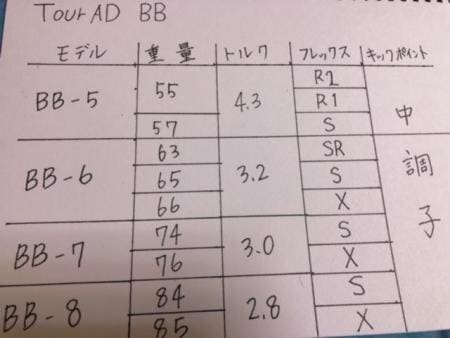 Tour AD BB
モデル 重量 トルク フレックス キックポイント
BB-5 55 4.3 R2
R1
57 S
BB-6 63 3.2 SR
65 S
66 X
BB-7 74 3.0 S
76 X
BB-8 84 2.8 S
85 X
中調子